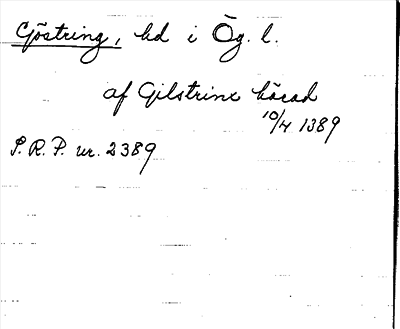 Göstring, hd i Ög. l.
af Gilstrinx härad
10/4 1389
S.R.P. nr. 2389